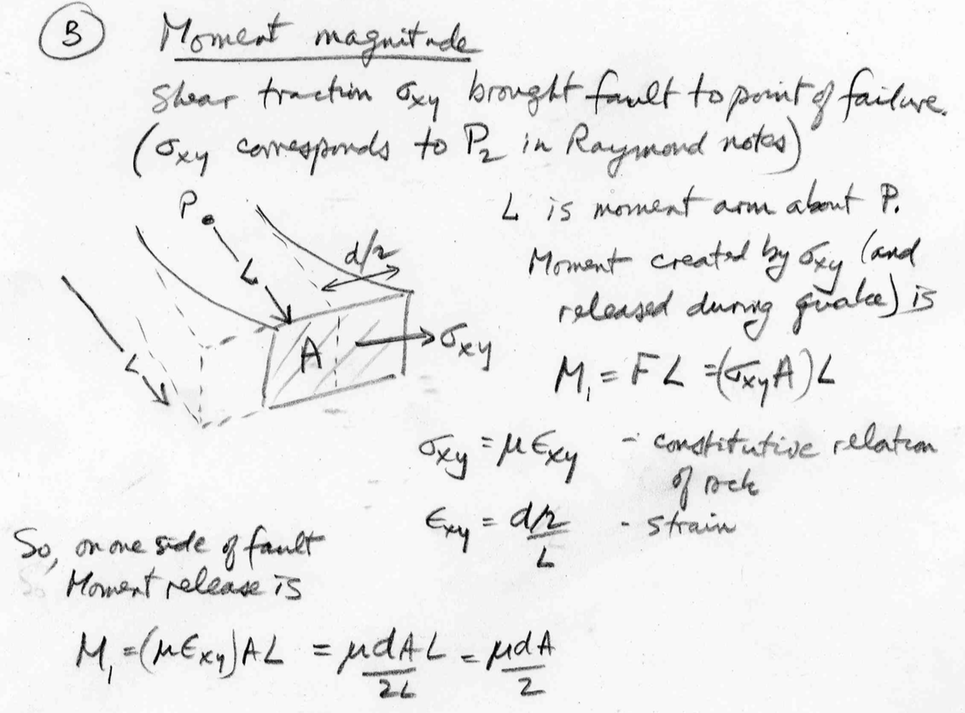 3 Moment magnitude
Shear traction σxy brought fault to point of failure.
(σxy corresponds to P2 in Raymond notes)
P
L
d/2
L
A
σxy
L is moment arm about P.
Moment created by σxy (and
released during quake) is
M1 = FL = (σxyA)L
σxy = μεxy - constitutive relation
of rock
εxy = d/2 / L - strain
So, on one side of fault
Moment release is
M1 = (μεxy)AL = μdAL / 2L = μdA / 2